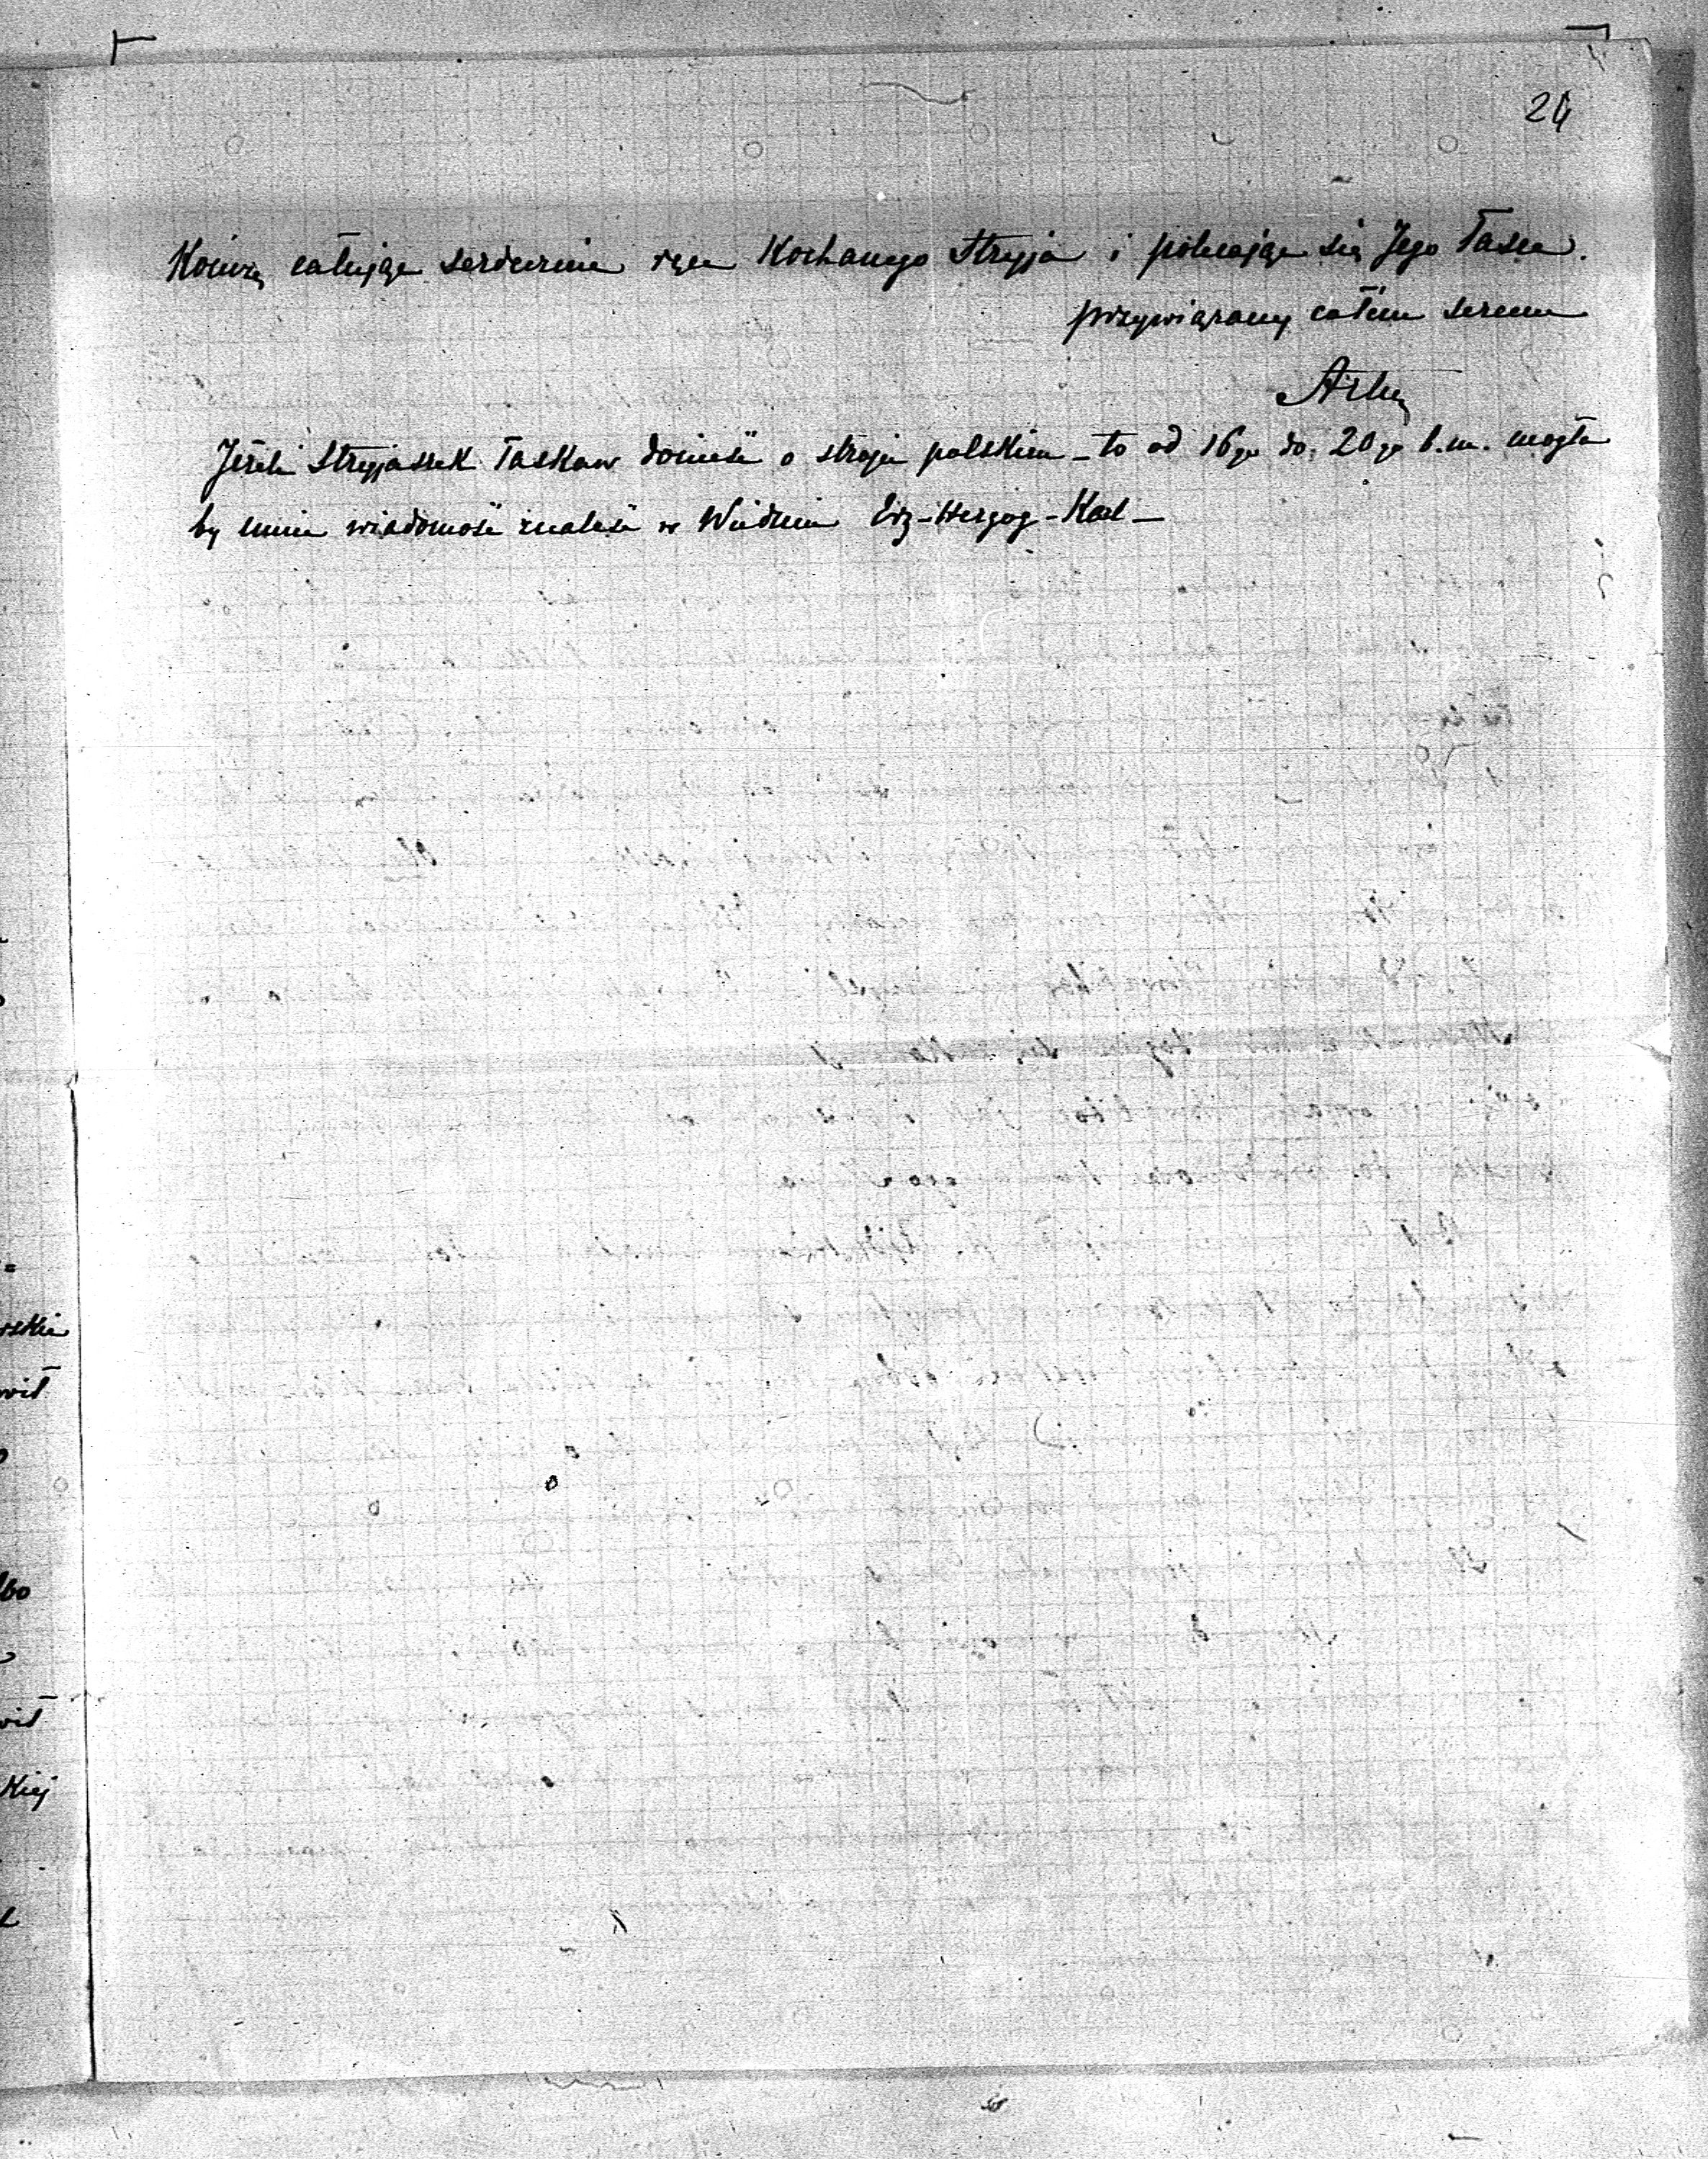 24
Kończę całując serdecznie ręce Kochanego Stryja i polecając się Jego Łasce.
przywiązany całem sercem
Jeżeli Stryjaszek łaskaw donieść o stroju polskim – to od 16go do 20go b.m. mogła
by mnie wiadomość znaleść w Wiedniu Erz-Herzog-Karl –